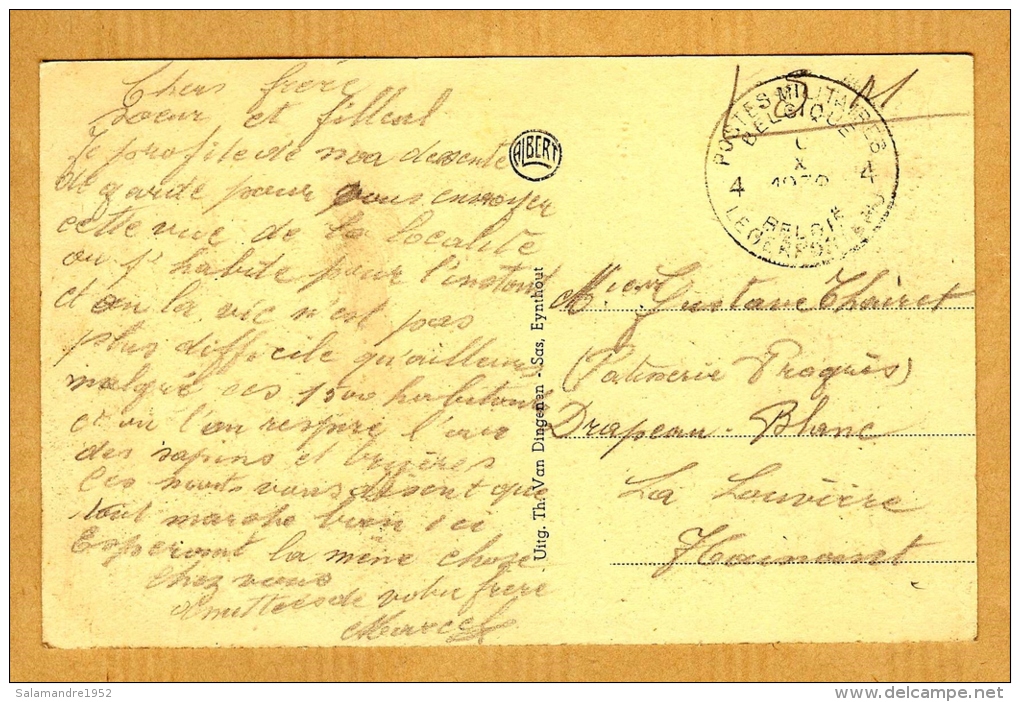 Chers frère
soeur et filleul
Je profite de ma descente
de garde pour vous envoyer
cette vue de la localité
ou je habite pour l'instant
et ou la vie n'est pas
plus difficile qu'ailleurs
malgré ces 1500 habitants
et ou l'on respire l'air
des sapins et bruyères
Ces mots vous disent que
tout marche bien ici
Esperant la même chose
chez vous
de votre frere
Marcel
ALBERT
Uitg. Th. Van Dingenen - Sas, Eynthout
S M
POSTES MILITAIRES
BELGIQUE
X
4 4
BELGIE
LEGERPOSTERIJ
Gustave Thairet
(Patinerie Progrès)
Drapeau-Blanc
La Louvière
Hainaut
Salamandre1952
delcampe.net